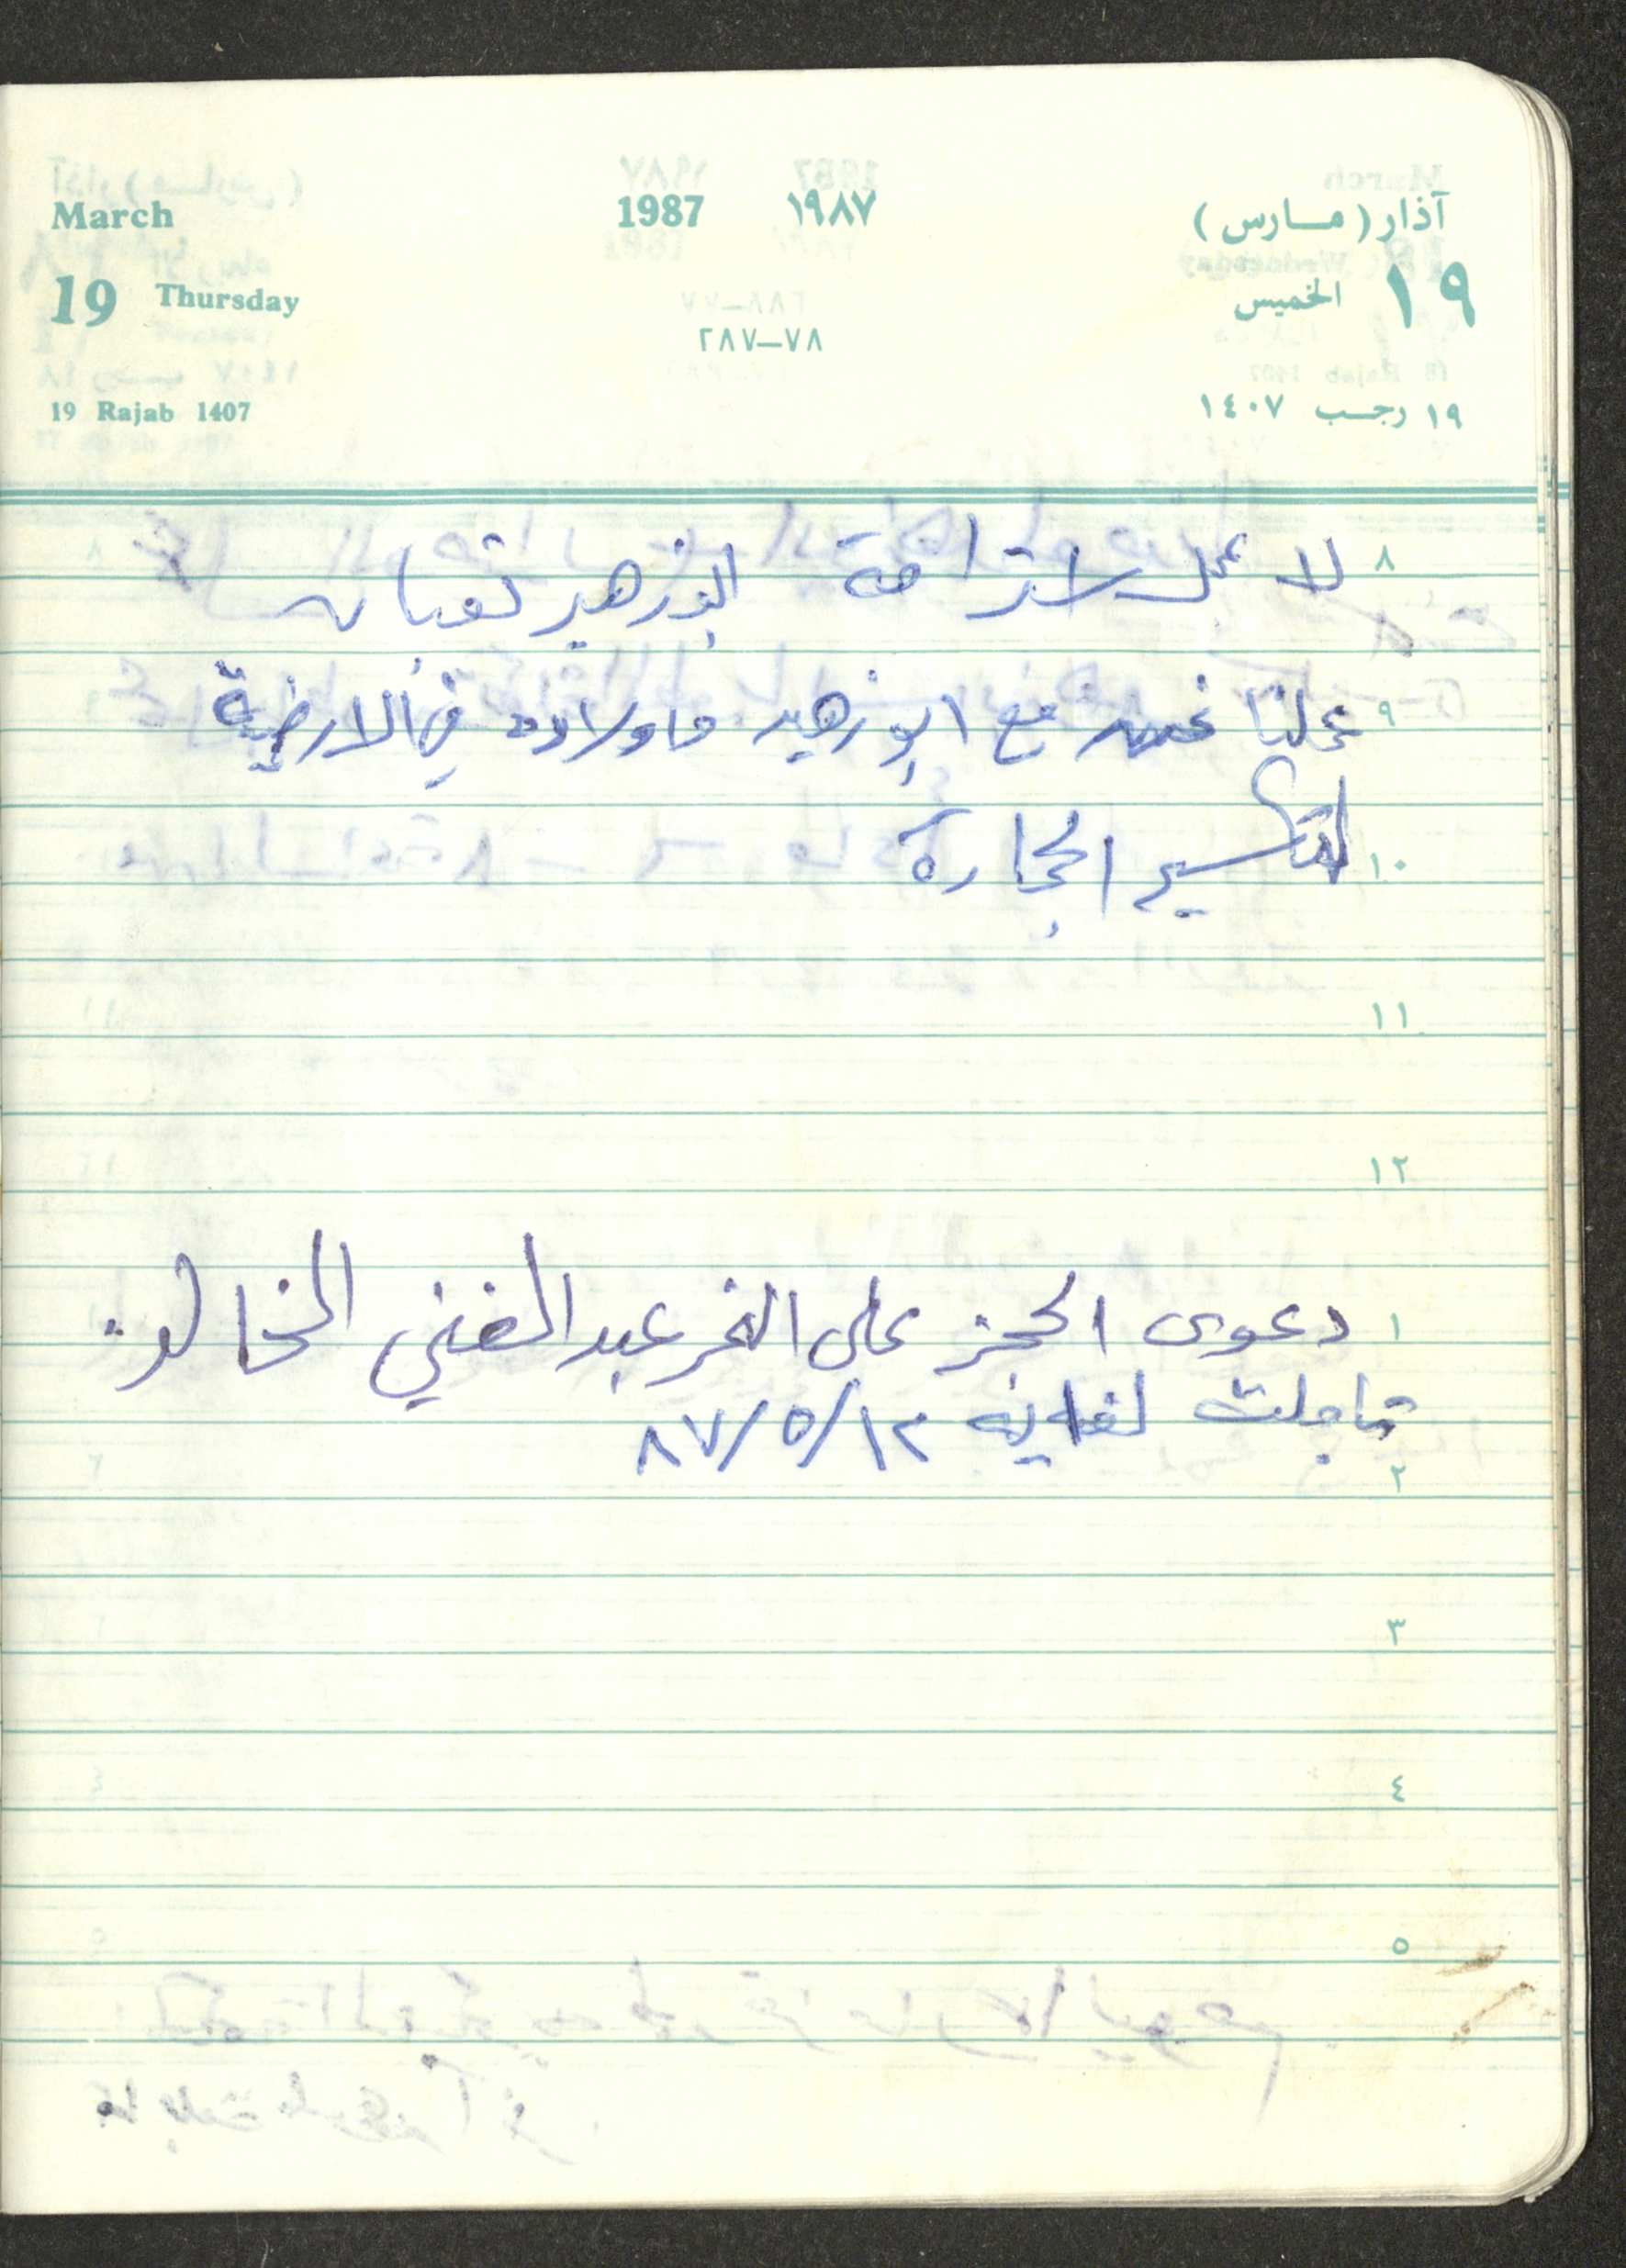 March 1987 ١٩٨٧ آذار (مارس)
19 Thursday الخميس ١٩
٧٨—٢٨٧
19 Rajab 1407 ١٩ رجب ١٤٠٧
٨ لا عمل استراحة ابو زهير تعبان
٩ عملنا نحن مع ابو زهير واولاده في الارضية
١٠ لتكسيح الحجارة
١١
١٢
١ دعوى الحجز على عبد الغني الخالد.
تاجلت لغاية ١٢/٥/٨٧
٢
٣
٤
٥